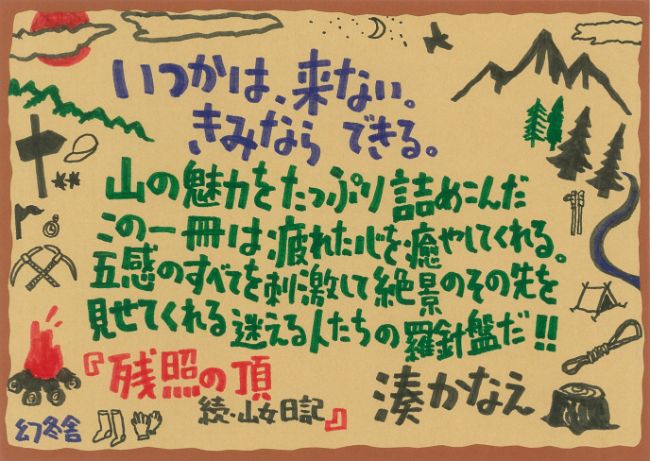 いつかは、来ない。
きみなら できる。
山の魅力をたっぷり詰めこんだ
この一冊は疲れた心を癒やしてくれる。
五感のすべてを刺激して絶景のその先を
見せてくれる迷える人たちの羅針盤だ!!
『残照の頂
続・山女日記』
湊かなえ
幻冬舎